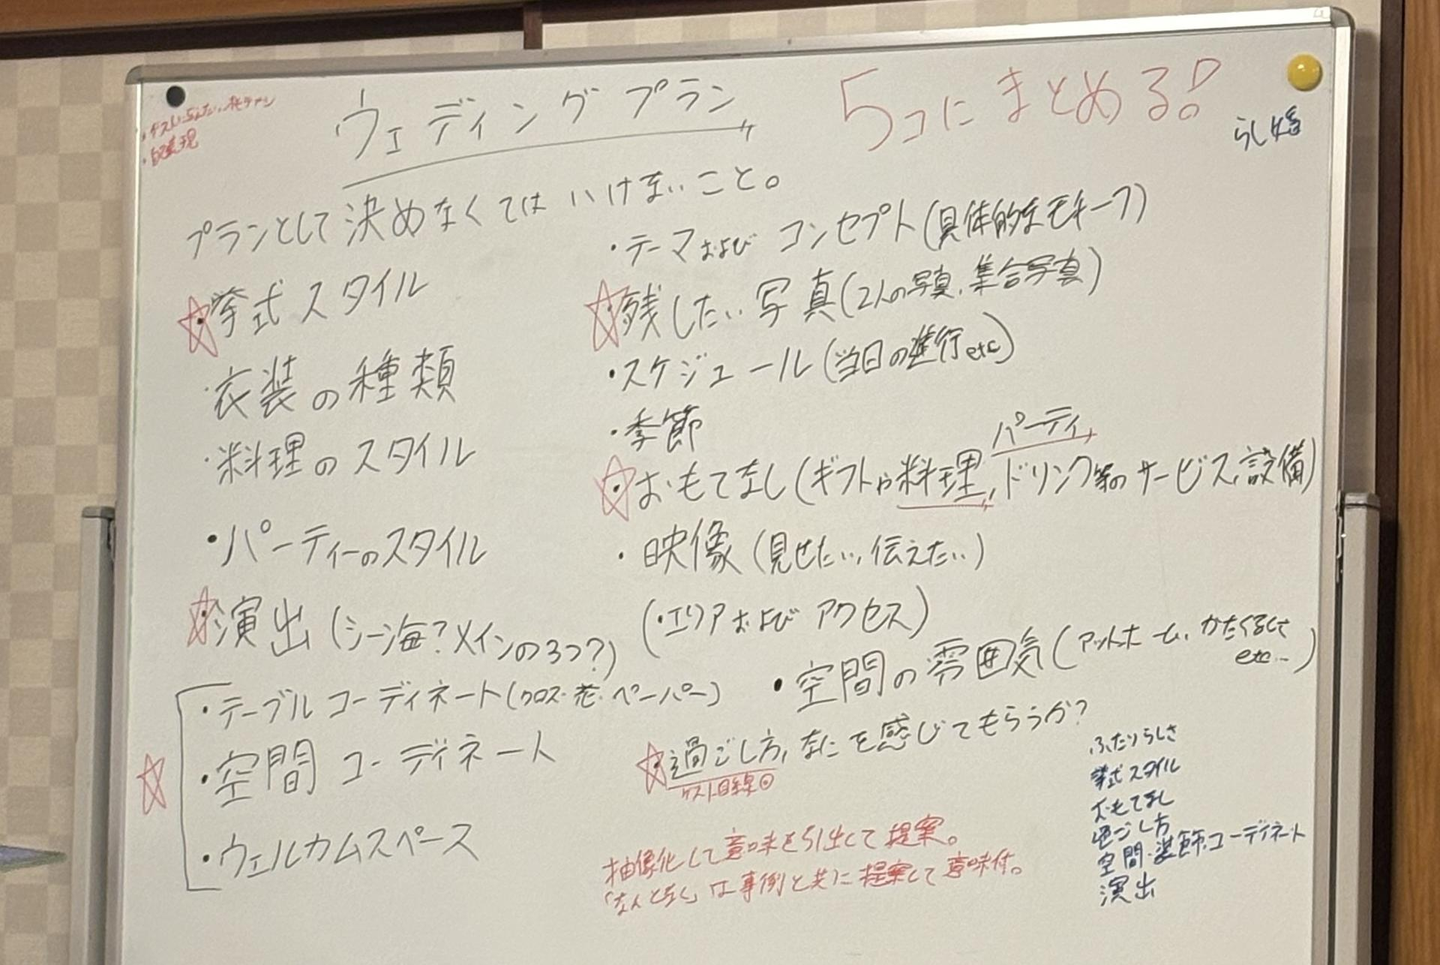 ウェディングプラン
5コにまとめる!
らし婚
プランとして決めなくてはいけないこと。
・挙式スタイル
・衣装の種類
・料理のスタイル
・パーティーのスタイル
・演出(シーン毎?メインの3つ?)
・テーブルコーディネート(クロス・花・ペーパー)
・空間コーディネート
・ウェルカムスペース
・テーマおよびコンセプト(具体的なモチーフ)
・残したい写真(2人の写真、集合写真)
・スケジュール(当日の進行etc)
・季節
パーティ
・おもてなし(ギフトや料理、ドリンク等のサービス、設備)
・映像(見せたい、伝えたい)
(・エリアおよびアクセス)
・空間の雰囲気(アットホーム、かたくるしくetc…)
・過ごし方、なにを感じてもらうか?
ゲスト目線
抽象化して意味を引出して提案。
「なんとなく」は事例と共に提案して意味付。
ふたりらしさ
挙式スタイル
おもてなし
過ごし方
空間・装飾・コーディネート
演出